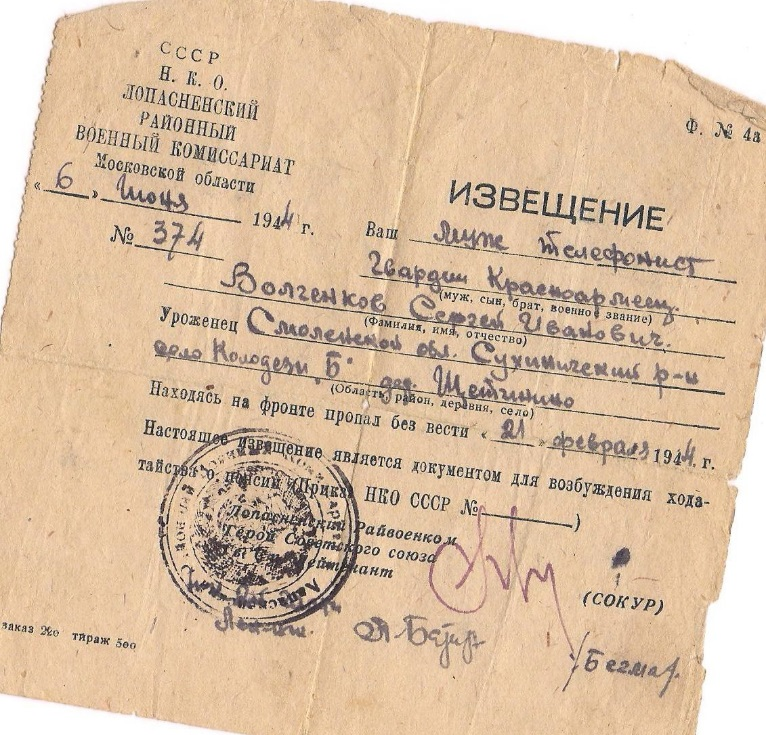 СССР
Н. К. О.
ЛОПАСНЕНСКИЙ
РАЙОННЫЙ
ВОЕННЫЙ КОМИССАРИАТ
Московской области
« 6 » Июня 1944 г.
№ 374
Ф. № 4а
ИЗВЕЩЕНИЕ
Ваш муж телефонист
Гвардии Красноармеец
(муж, сын, брат, военное звание)
Волченков Сергей Иванович.
(Фамилия, имя, отчество)
Уроженец Смоленской обл. Сухиничский р-н
село Колодези "Б" дер. Щетинино
(Область, район, деревня, село)
Находясь на фронте пропал без вести « 21 » февраля 1944 г.
Настоящее извещение является документом для возбуждения хода-
тайства о пенсии (Приказ НКО СССР № )
Лопасненский Райвоенком
Герой Советского союза
лейтенант
(СОКУР)
заказ 220 тираж 500